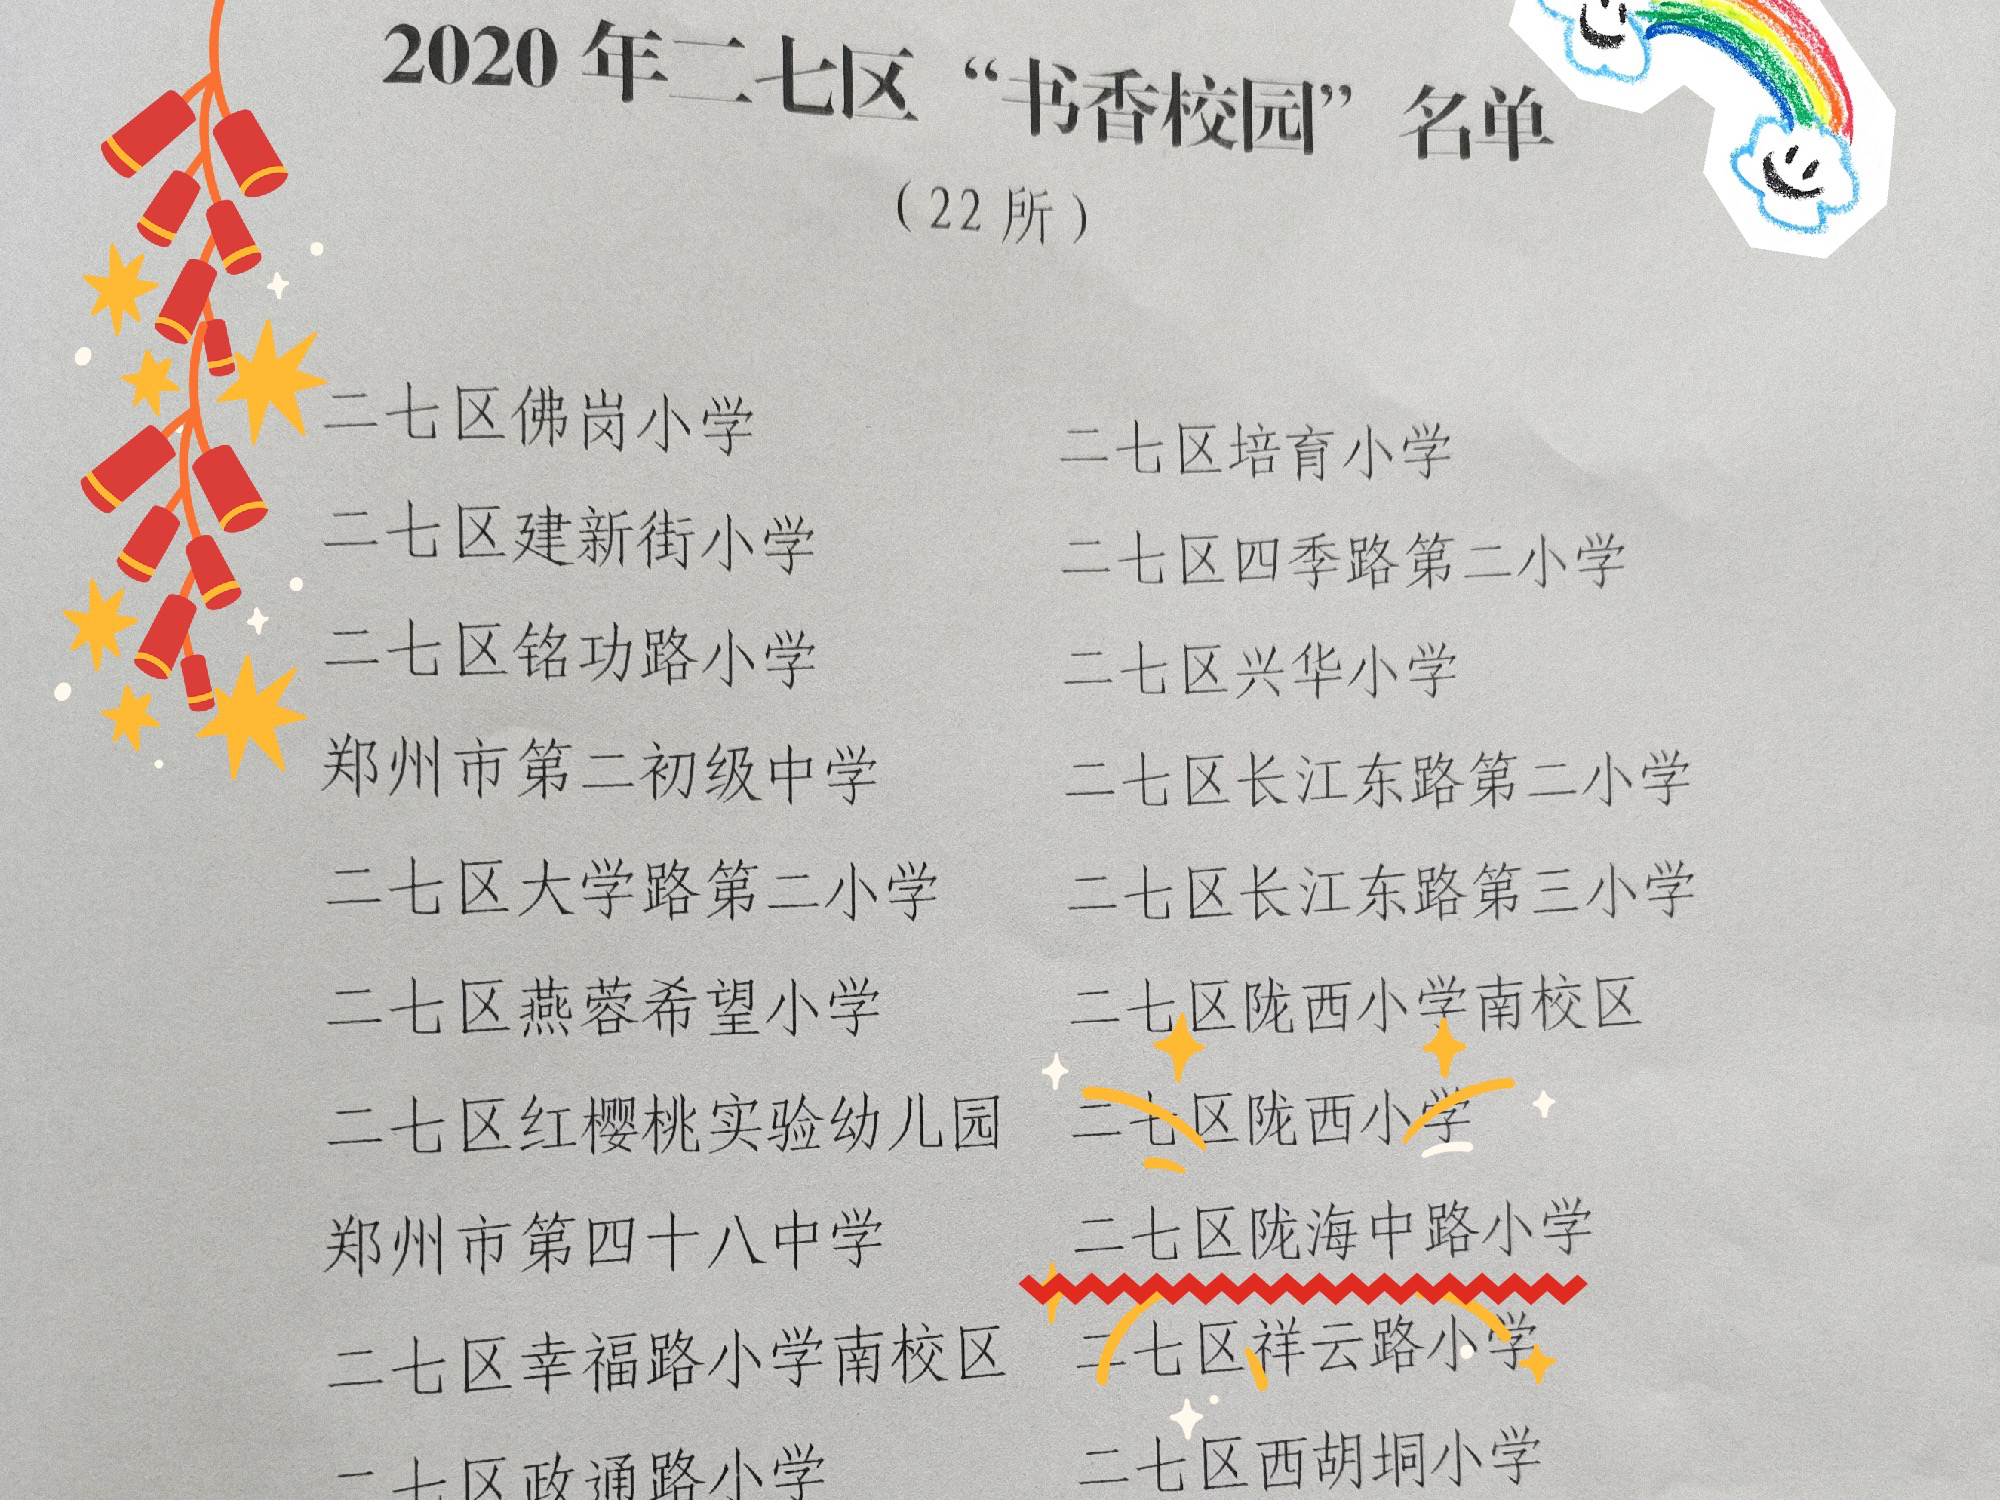 2020年二七区“书香校园”名单
（22所）
二七区佛岗小学
二七区培育小学
二七区建新街小学
二七区四季路第二小学
二七区铭功路小学
二七区兴华小学
郑州市第二初级中学
二七区长江东路第二小学
二七区大学路第二小学
二七区长江东路第三小学
二七区燕蓉希望小学
二七区陇西小学南校区
二七区红樱桃实验幼儿园
二七区陇西小学
郑州市第四十八中学
二七区陇海中路小学
二七区幸福路小学南校区
二七区祥云路小学
二七区政通路小学
二七区西胡垌小学